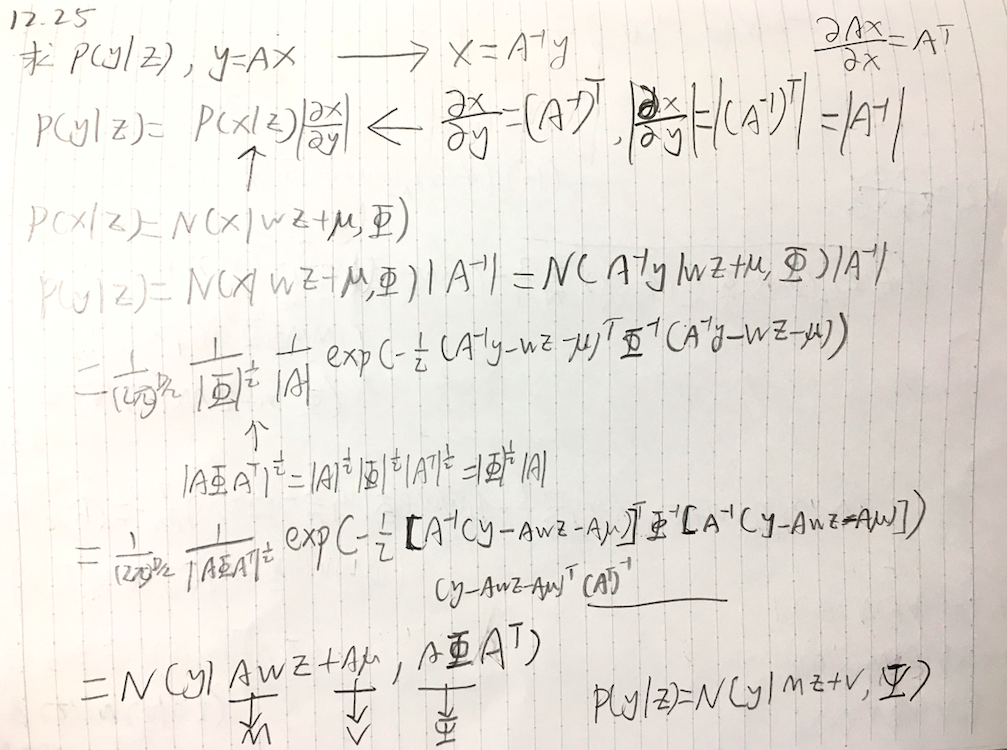 12.25
求 P(y|z), y=AX ⟶ X=A⁻¹y ∂AX/∂X=Aᵀ
P(y|z)= P(X|Z)|∂X/∂y| ← ∂X/∂y=(A⁻¹)ᵀ, |∂X/∂y|=|(A⁻¹)ᵀ|=|A⁻¹|
↑
P(X|Z)=N(X|WZ+μ,Φ)
P(y|z)=N(X|WZ+μ,Φ)|A⁻¹|=N(A⁻¹y|WZ+μ,Φ)|A⁻¹|
=1/(2π)^{D/2} 1/|Φ|^{1/2} 1/|A| exp(-1/2(A⁻¹y-WZ-μ)ᵀΦ⁻¹(A⁻¹y-WZ-μ))
↑
|AΦAᵀ|^{1/2}=|A|^{1/2}|Φ|^{1/2}|Aᵀ|^{1/2}=|Φ|^{1/2}|A|
=1/(2π)^{D/2} 1/|AΦAᵀ|^{1/2} exp(-1/2[A⁻¹(y-AWZ-Aμ)]ᵀΦ⁻¹[A⁻¹(y-AWZ-Aμ)])
(y-AWZ-Aμ)ᵀ(Aᵀ)⁻¹
=N(y|AWZ+Aμ, AΦAᵀ)
↓ ↓ ↓
M V Ψ
P(y|z)=N(y|MZ+V,Ψ)